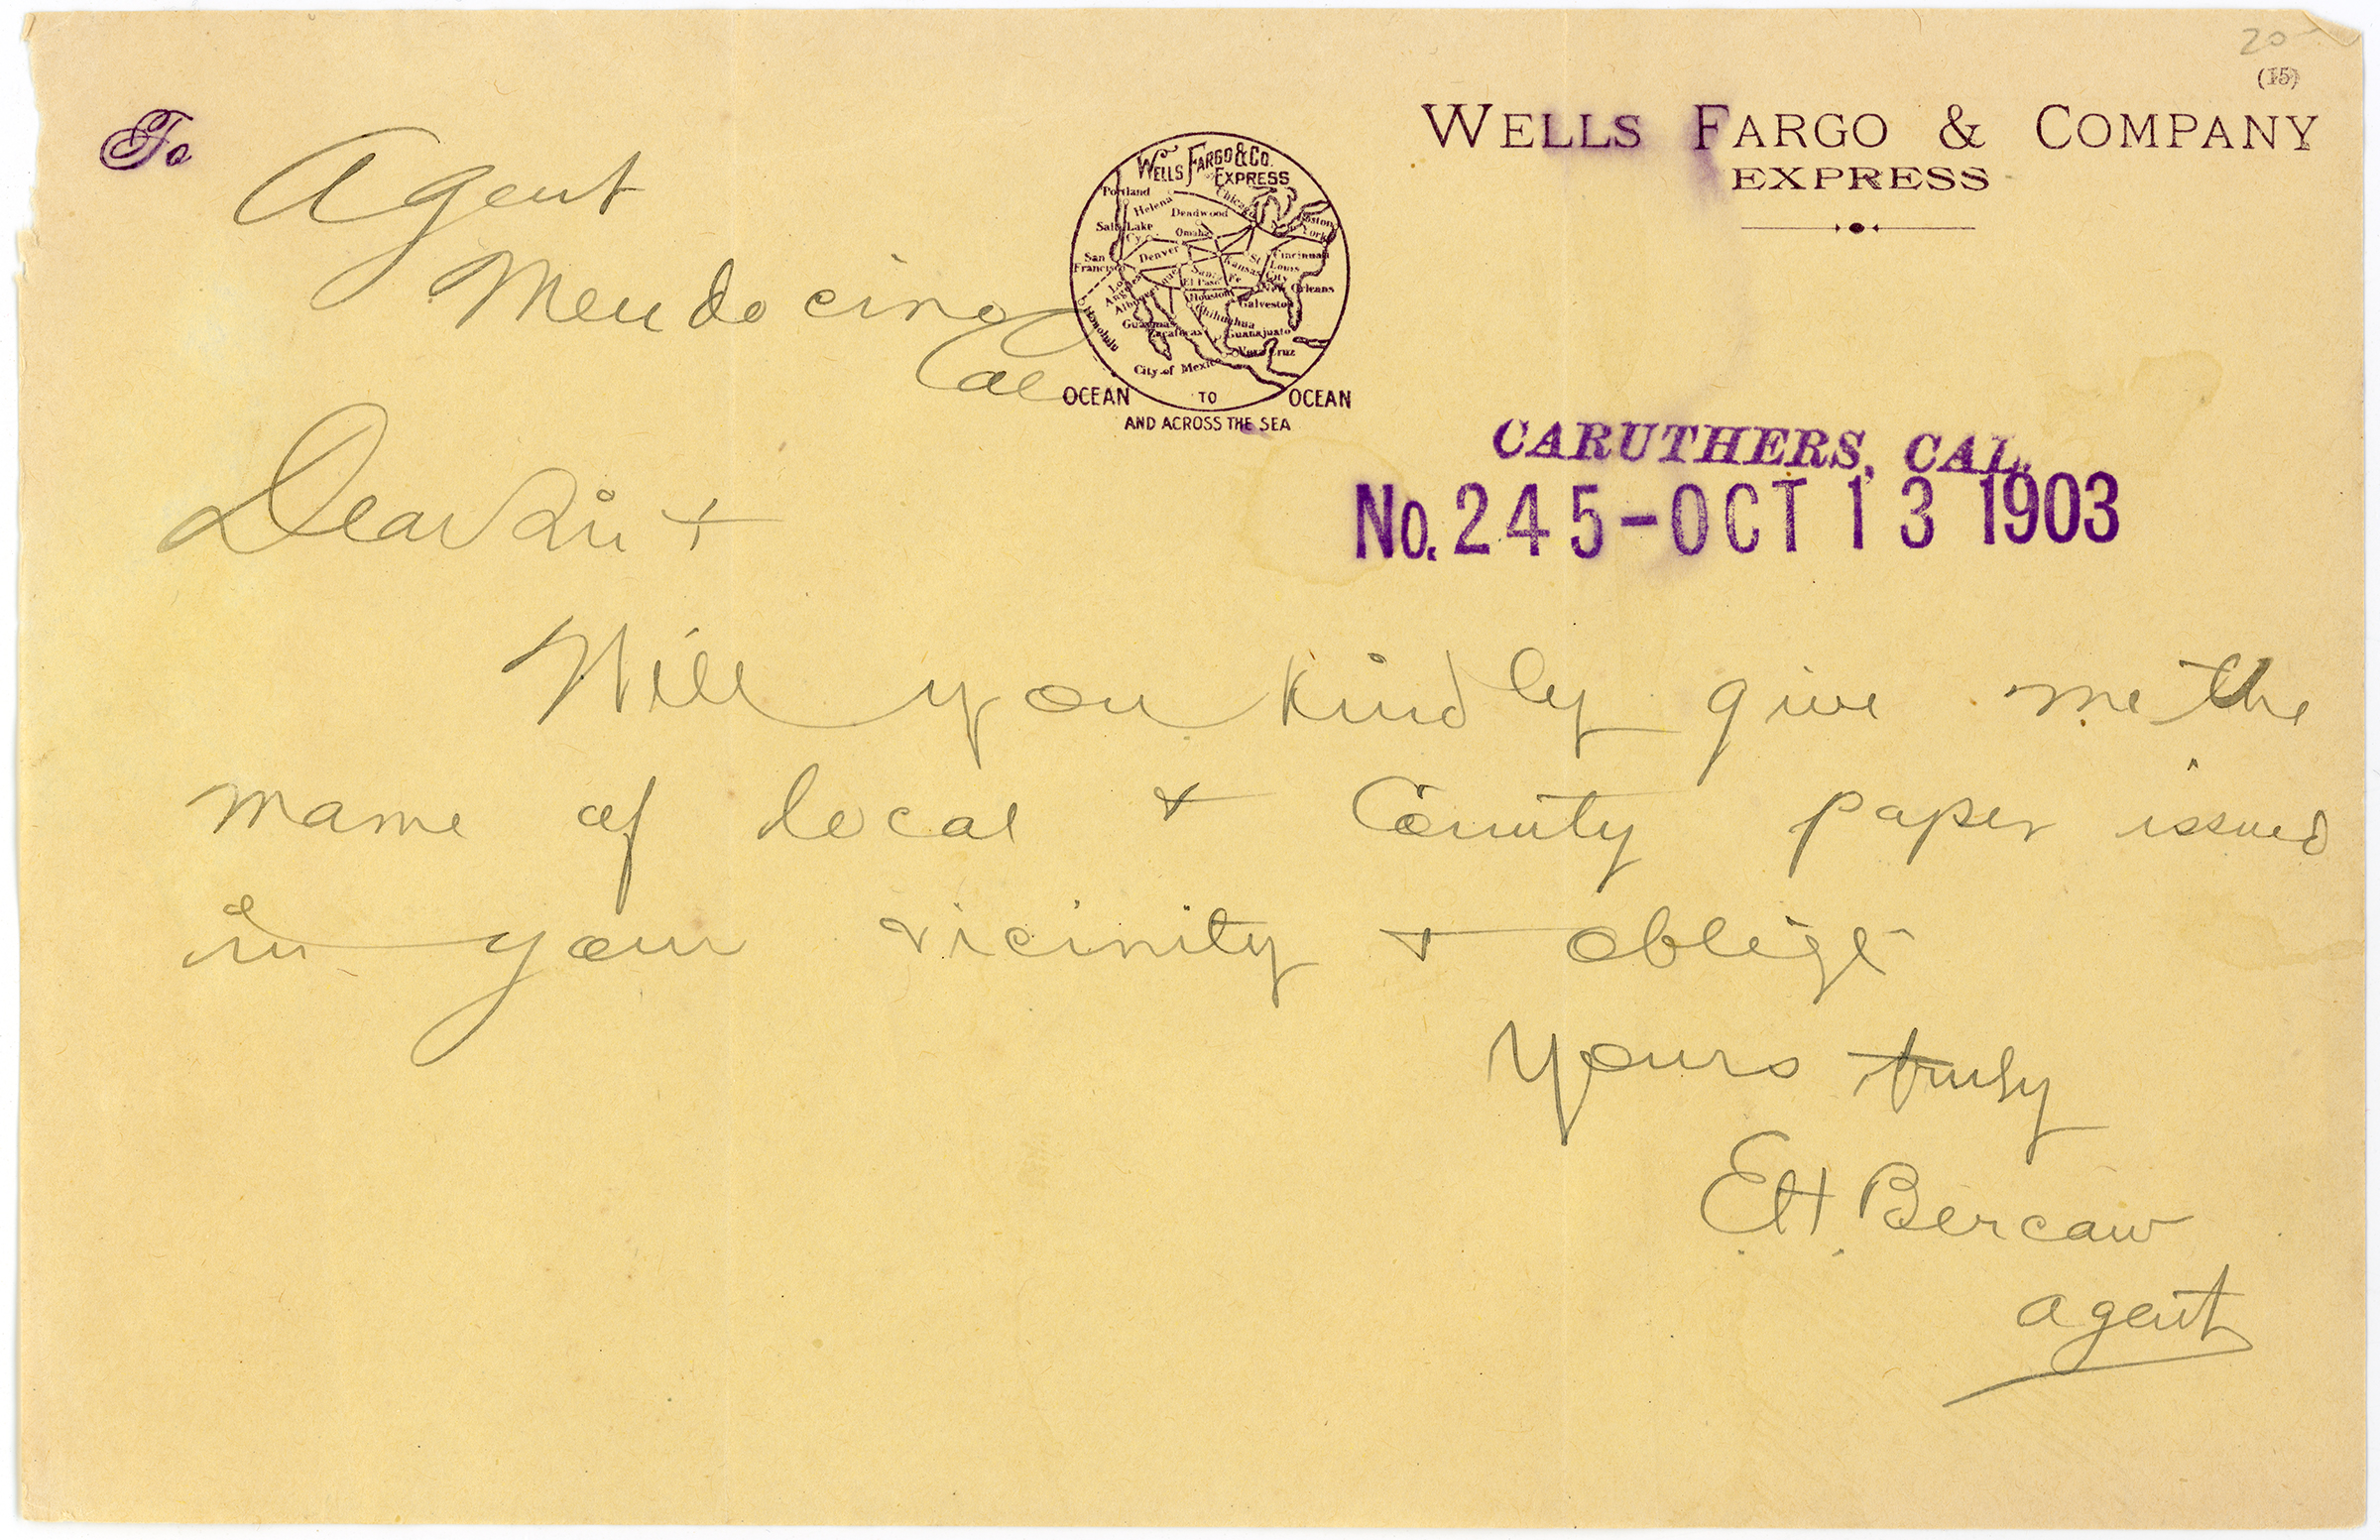 20
(15)
To Agent
Mendocino
Cal
WELLS FARGO & COMPANY
EXPRESS
WELLS FARGO & CO.
EXPRESS
Portland
Helena
Deadwood
Chicago
Boston
New York
Salt Lake
Cy.
Omaha
San
Francisco
Denver
Kansas City
St Louis
Cincinnati
Santa Fe
Los
Angeles
El Paso
Houston
New Orleans
Galveston
Honolulu
Guaymas
Chihuahua
Zacatecas
Guanajuato
Vera Cruz
City of Mexico
OCEAN TO OCEAN
AND ACROSS THE SEA
CARUTHERS, CAL.
No. 245-OCT 13 1903
Dear Sir +
Will you kindly give me the
name of local & County paper issued
in your vicinity & oblige
Yours truly
E.H. Bercaw
agent